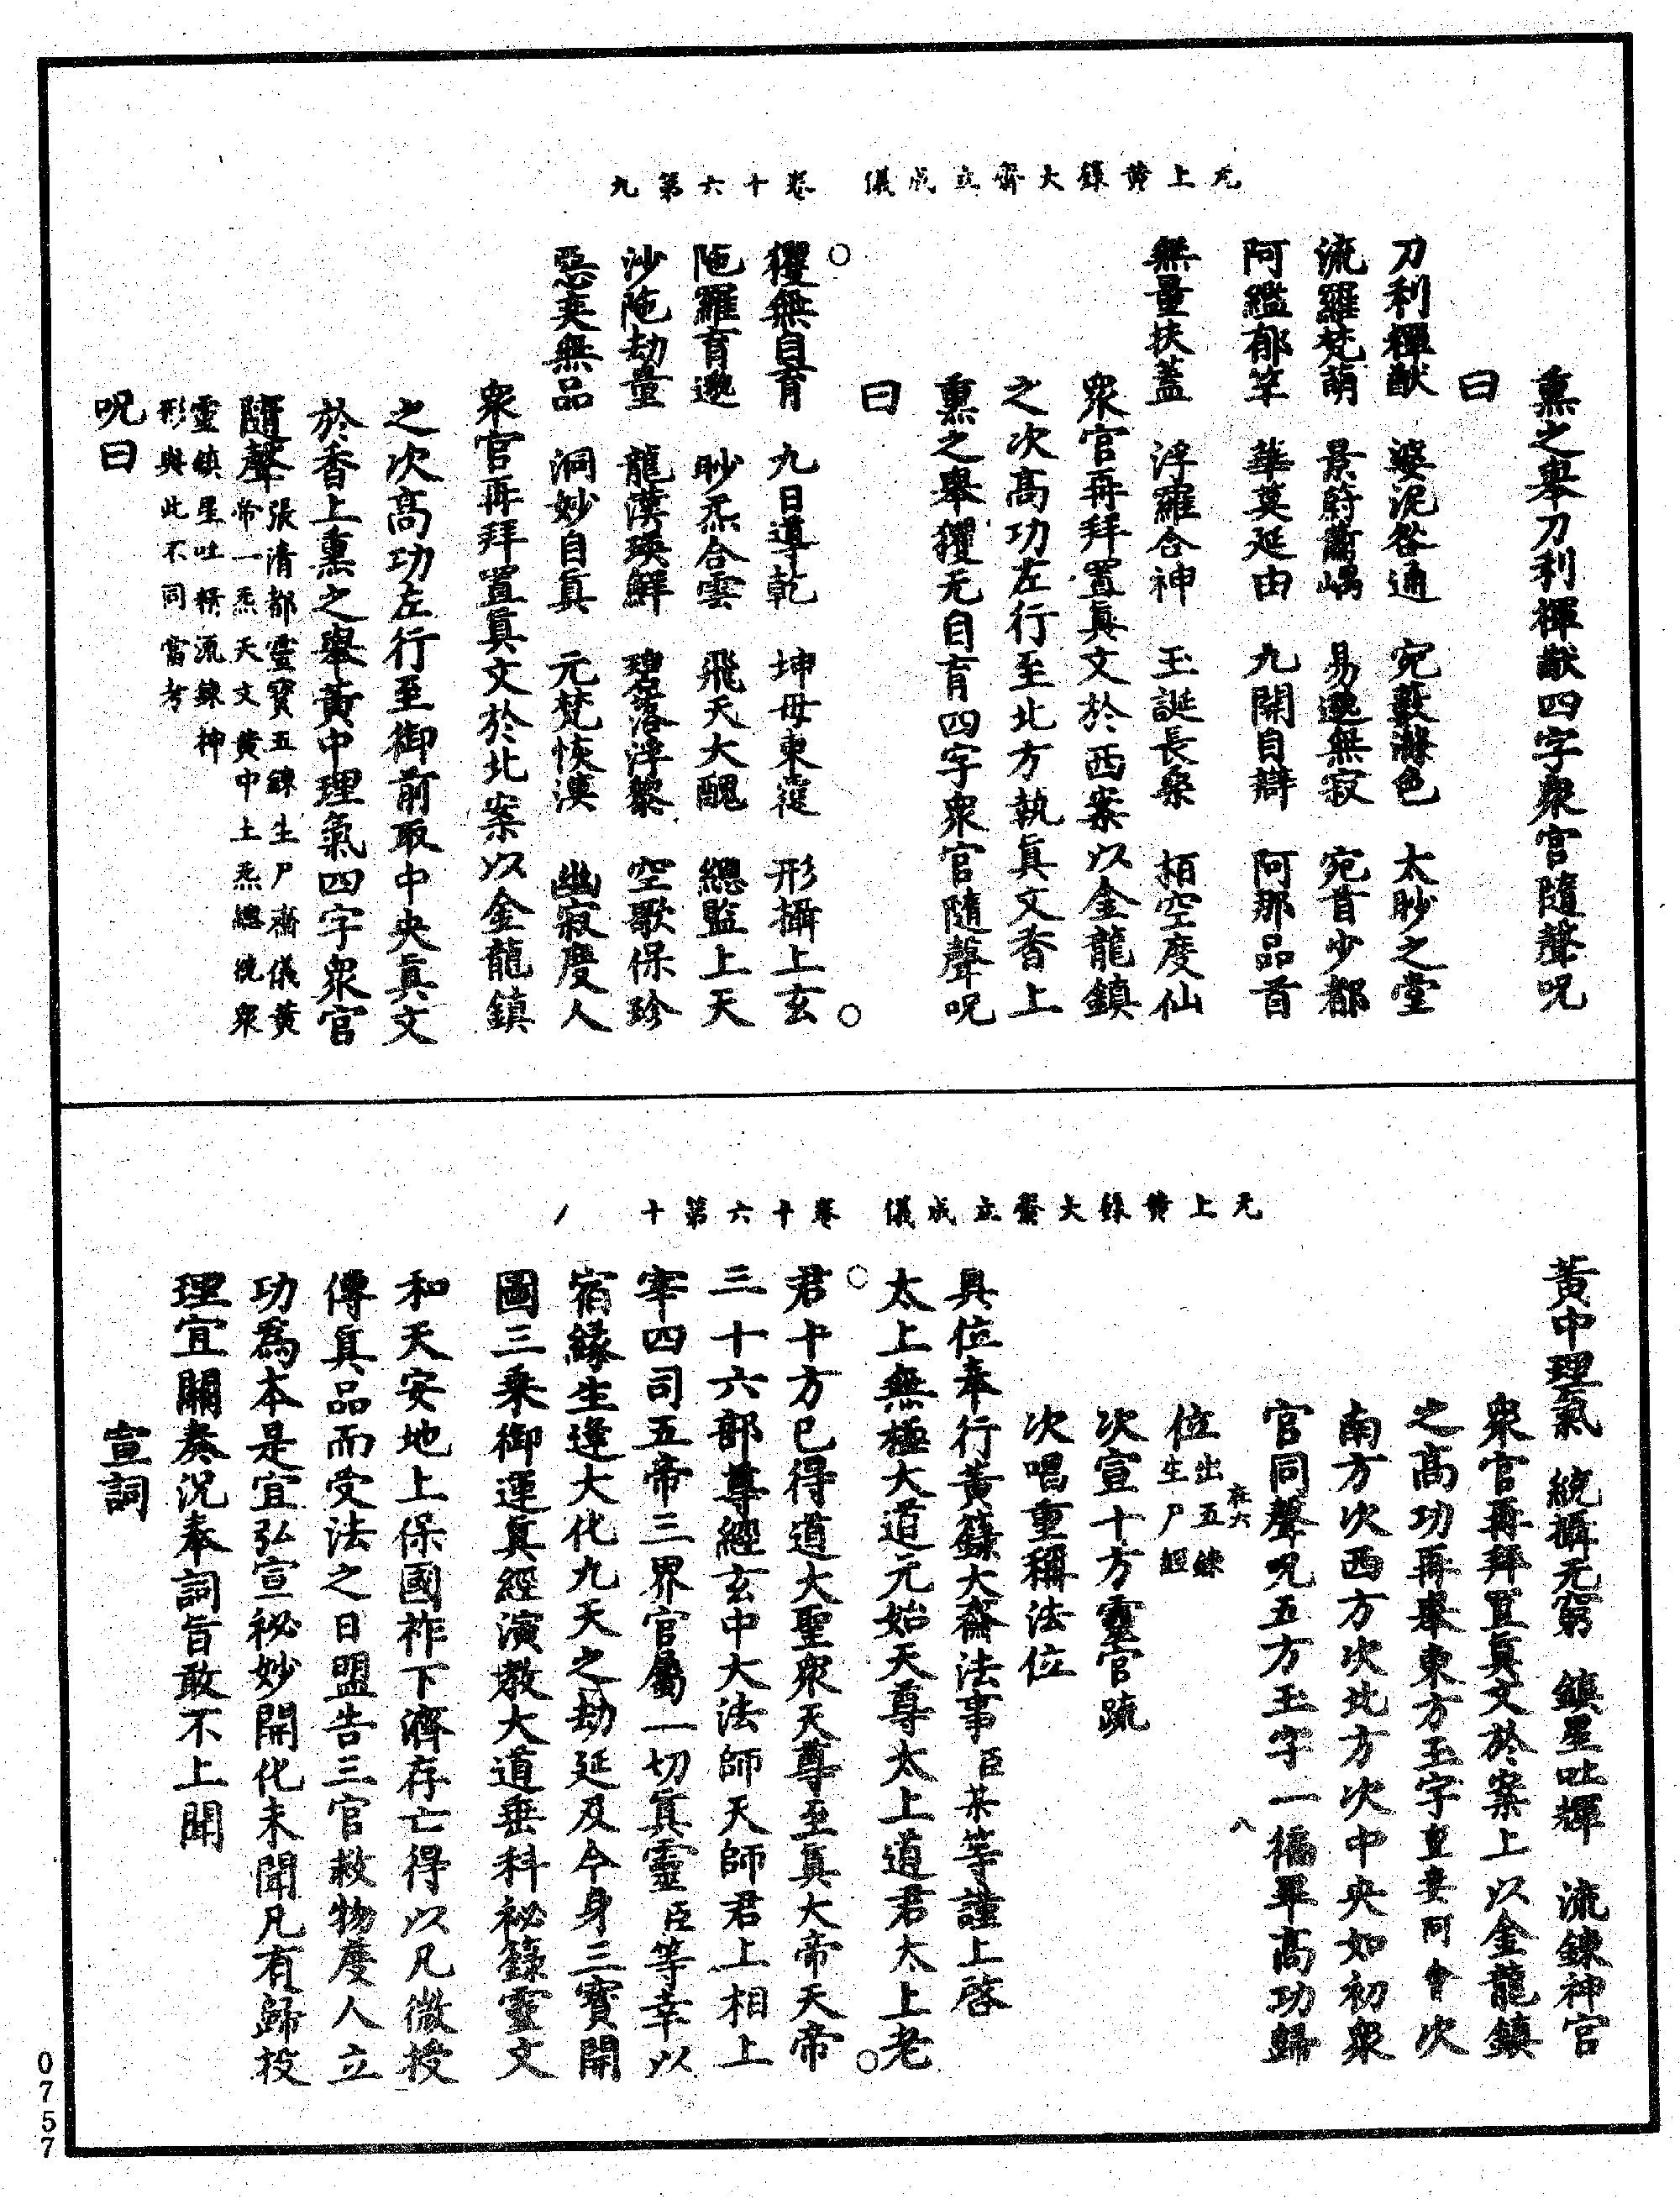 無上黃籙大齋立成儀　卷十六第九
熏之舉刀利禪猷四字衆官隨聲呪
曰
刀利禪猷　婆泥咎通　宛藪滌色　太眇之堂
流羅梵萌　景蔚蕭嵎　易邈無寂　宛首少都
阿濫郁竺　華莫延由　九開自辯　阿那品首
無量扶蓋　浮羅合神　玉誕長桑　栢空度仙
衆官再拜置眞文於西案以金龍鎮
之次高功左行至北方執眞文香上
熏之舉獲无自育四字衆官隨聲呪
曰
獲無自育　九日導乾　坤母東覆　形攝上玄
陁羅育邈　眇炁合雲　飛天大醜　總監上天
沙陁劫量　龍漢瑛鮮　碧落浮黎　空歌保珍
惡奕無品　洞妙自眞　元梵恢漠　幽寂度人
衆官再拜置眞文於北案以金龍鎮
之次高功左行至御前取中央眞文
於香上熏之舉黃中理氣四字衆官
隨聲張清都靈寶五鍊生尸齋儀黃
帝一炁天文黃中土炁總統衆
靈鎮星吐輝流鍊神
形與此不同當考
呪曰
無上黃籙大齋立成儀　卷十六第十
黃中理氣　統攝无窮　鎮星吐輝　流鍊神宮
衆官再拜置眞文於案上以金龍鎮
之高功再舉東方玉字亶婁阿會次
南方次西方次北方次中央如初衆
官同聲呪五方玉字一徧畢高功歸
在六　八
位出五鍊
生尸經
次宣十方靈官疏
次唱重稱法位
具位奉行黃籙大齋法事臣某等謹上啓
太上無極大道元始天尊太上道君太上老
君十方已得道大聖衆天尊至眞大帝天帝
三十六部尊經玄中大法師天師君上相上
宰四司五帝三界官屬一切眞靈臣等幸以
宿緣生逢大化九天之劫延及今身三寶開
圖三乘御運眞經演教大道垂科祕籙靈文
和天安地上保國祚下濟存亡得以凡微授
傳眞品而受法之日盟告三官救物度人立
功爲本是宜弘宣祕妙開化未聞凡有歸投
理宜關奏況奉詞旨敢不上聞
宣詞
0757